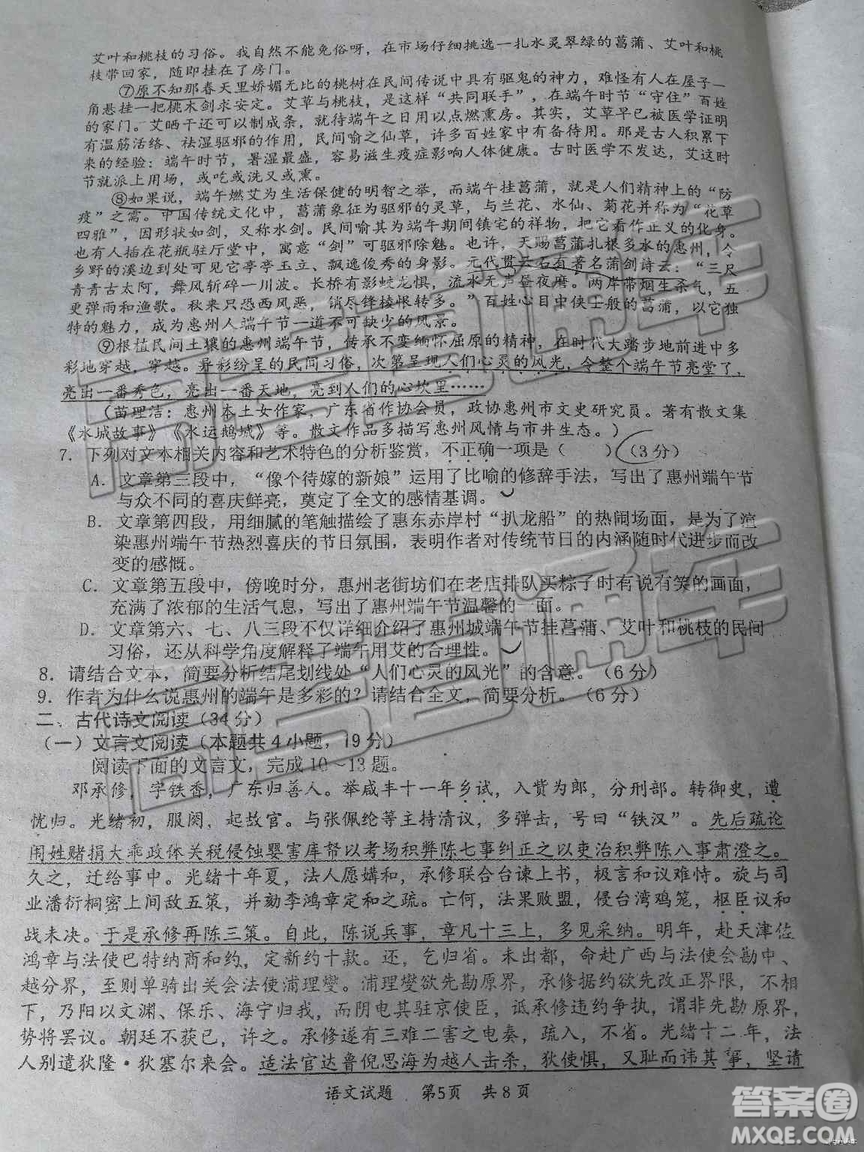 艾叶和桃枝的习俗。我自然不能免俗呀，在市场仔细挑选一扎水灵翠绿的菖蒲、艾叶和桃
枝带回家，随即挂在了房门。
⑦原不知那春天里娇媚无比的桃树在民间传说中具有驱鬼的神力，难怪有人在屋子一
角悬挂一把桃木剑求安定。艾草与桃枝，是这样“共同联手”，在端午时节“守住”百姓
的家门。艾晒干还可以制成条，就待端午之日用以点燃熏房。其实，艾草早已被医学证明
有温筋活络、祛湿驱邪的作用，民间喻之仙草，许多百姓家中有备待用。那是古人积累下
来的经验：端午时节，暑湿最盛，容易滋生疫症影响人体健康。古时医学不发达，艾这时
节就派上用场，或吃或洗又或熏。
⑧如果说，端午燃艾为生活保健的明智之举，而端午挂菖蒲，就是人们精神上的“防
疫”之需。中国传统文化中，菖蒲象征为驱邪的灵草，与兰花、水仙、菊花并称为“花草
四雅”，因形状如剑，又称水剑。民间喻其为端午期间镇宅的祥物，把它看作正义的化身。
也有人插在花瓶驻厅堂中，寓意“剑”可驱邪除魅。也许，天赐菖蒲扎根多水的惠州，令
乡野的溪边到处可见它亭亭玉立、飘逸俊秀的身影。元代贯云石有著名蒲剑诗云：“三尺
青青古太阿，舞风斩碎一川波。长桥有影蛟龙惧，流水无声昼夜磨。两岸带烟生杀气，五
更弹雨和渔歌。秋来只恐西风恶，销尽锋棱恨转多。”百姓心目中侠士般的菖蒲，以它独
特的魅力，成为惠州人端午节一道不可缺少的风景。
⑨根植民间土壤的惠州端午节，传承不变缅怀屈原的精神，在时代大踏步地前进中多
彩地穿越，穿越。异彩纷呈的民间习俗，次第呈现人们心灵的风光，令整个端午节亮堂了，
亮出一番秀色，亮出一番天地，亮到人们的心坎里……
（苗理洁：惠州本土女作家，广东省作协会员，政协惠州市文史研究员。著有散文集
《水城故事》《水运鹅城》等。散文作品多描写惠州风情与市井生态。）
7．下列对文本相关内容和艺术特色的分析鉴赏，不正确一项是（　　）（3分）
A．文章第三段中，“像个待嫁的新娘”运用了比喻的修辞手法，写出了惠州端午节
与众不同的喜庆鲜亮，奠定了全文的感情基调。
B．文章第四段，用细腻的笔触描绘了惠东赤岸村“扒龙船”的热闹场面，是为了渲
染惠州端午节热烈喜庆的节日氛围，表明作者对传统节日的内涵随时代进步而改
变的感慨。
C．文章第五段中，傍晚时分，惠州老街坊们在老店排队买粽子时有说有笑的画面，
充满了浓郁的生活气息，写出了惠州端午节温馨的一面。
D．文章第六、七、八三段不仅详细介绍了惠州城端午节挂菖蒲、艾叶和桃枝的民间
习俗，还从科学角度解释了端午用艾的合理性。
8．请结合文本，简要分析结尾划线处“人们心灵的风光”的含意。（6分）
9．作者为什么说惠州的端午是多彩的？请结合全文，简要分析。（6分）
二、古代诗文阅读（34分）
（一）文言文阅读（本题共4小题，19分）
阅读下面的文言文，完成10～13题。
邓承修，字铁香，广东归善人。举咸丰十一年乡试，入赀为郎，分刑部。转御史，遭
忧归。光绪初，服阕，起故官。与张佩纶等主持清议，多弹击，号曰“铁汉”。先后疏论
闱姓赌捐大乖政体关税侵蚀婴害库帑以考场积弊陈七事纠正之以吏治积弊陈八事肃澄之。
久之，迁给事中。光绪十年夏，法人愿媾和，承修联合台谏上书，极言和议难恃。旋与司
业潘衍桐密上间敌五策，并劾李鸿章定和之疏。亡何，法果败盟，侵台湾鸡笼，枢臣议和
战未决。于是承修再陈三策。自此，陈说兵事，章凡十三上，多见采纳。明年，赴天津佐
鸿章与法使巴特纳商和约，定新约十款。还，乞归省。未出都，命赴广西与法使会勘中
越分界。至则单骑出关会法使浦理燮。浦理燮欲先勘原界，承修据约欲先改正界限，不相
下，乃阳以文渊、保乐、海宁归我，而阴电其驻京使臣，诋承修违约争执，谓非先勘原界，
势将罢议。朝廷不获已，许之。承修有三难二害之电奏，疏入，不省。光绪十二年，法
人别遣狄隆·狄塞尔来会。适法官达鲁倪思海为越人击杀，狄使惧，又耻而讳其事，坚请
语文试题　第5页　共8页
答案圈
MXQE.COM